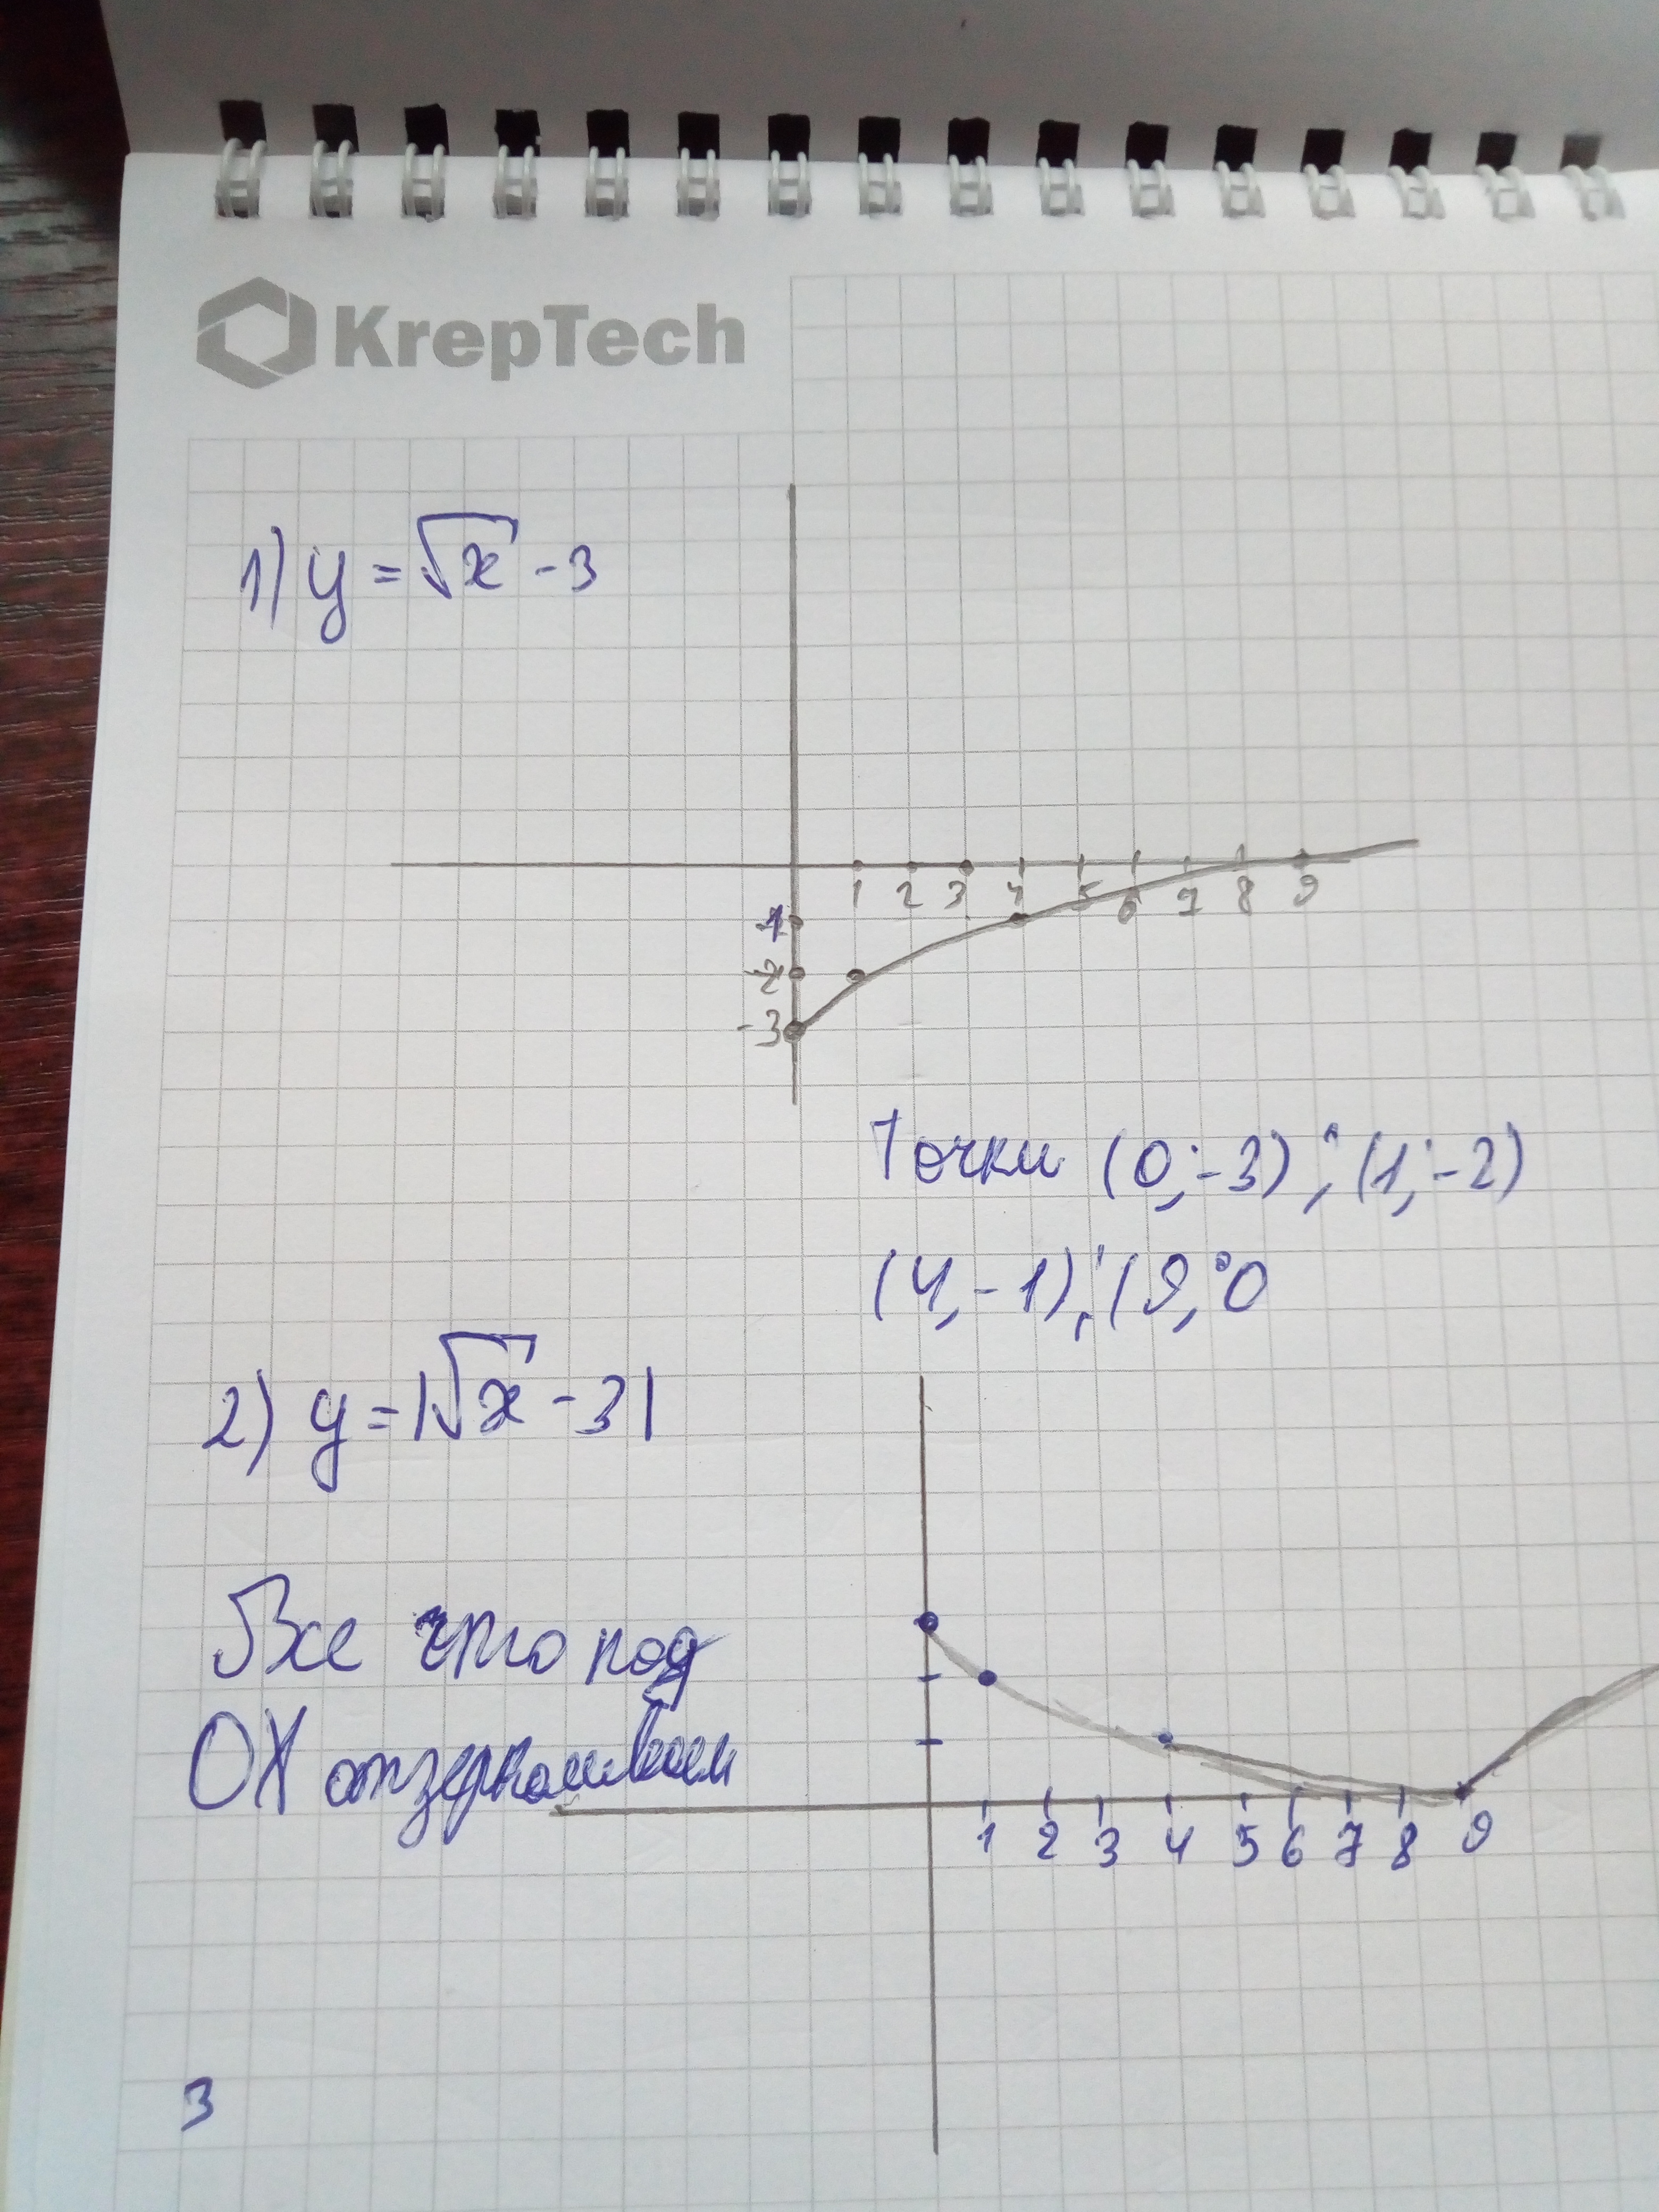 KrepTech
1) y = √x - 3
1 2 3 4 5 6 7 8 9
-1
-2
-3
Точки (0;-3); (1;-2)
(4,-1); (9;0
2) y = |√x - 3|
Все что под
OX отзеркаливаем
1 2 3 4 5 6 7 8 9
3